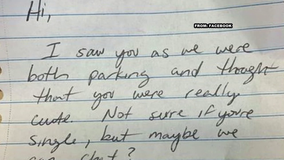 FROM: FACEBOOK
Hi,
I saw you as we were
both parking and thought
that you were really
cute. Not sure if you're
single, but maybe we
can chat?